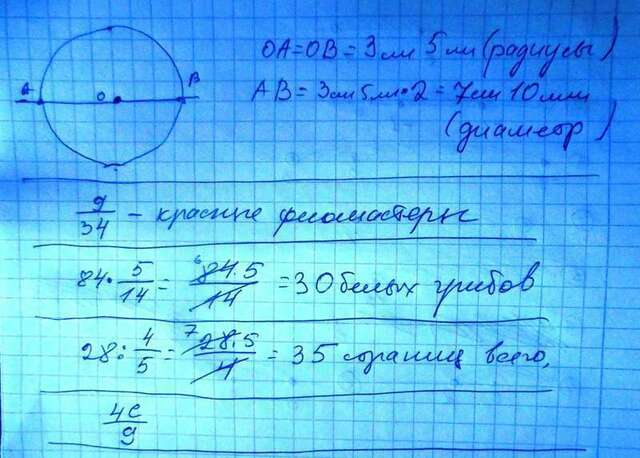 A O B
OA=OB=3см 5мм(радиусы)
AB=3см5мм•2=7см10мм
(диаметр)
9/34 - красные фломастеры
84•5/14=84.5/14=30белых грибов
28:4/5=28.5/4=35 страниц всего,
4c/9